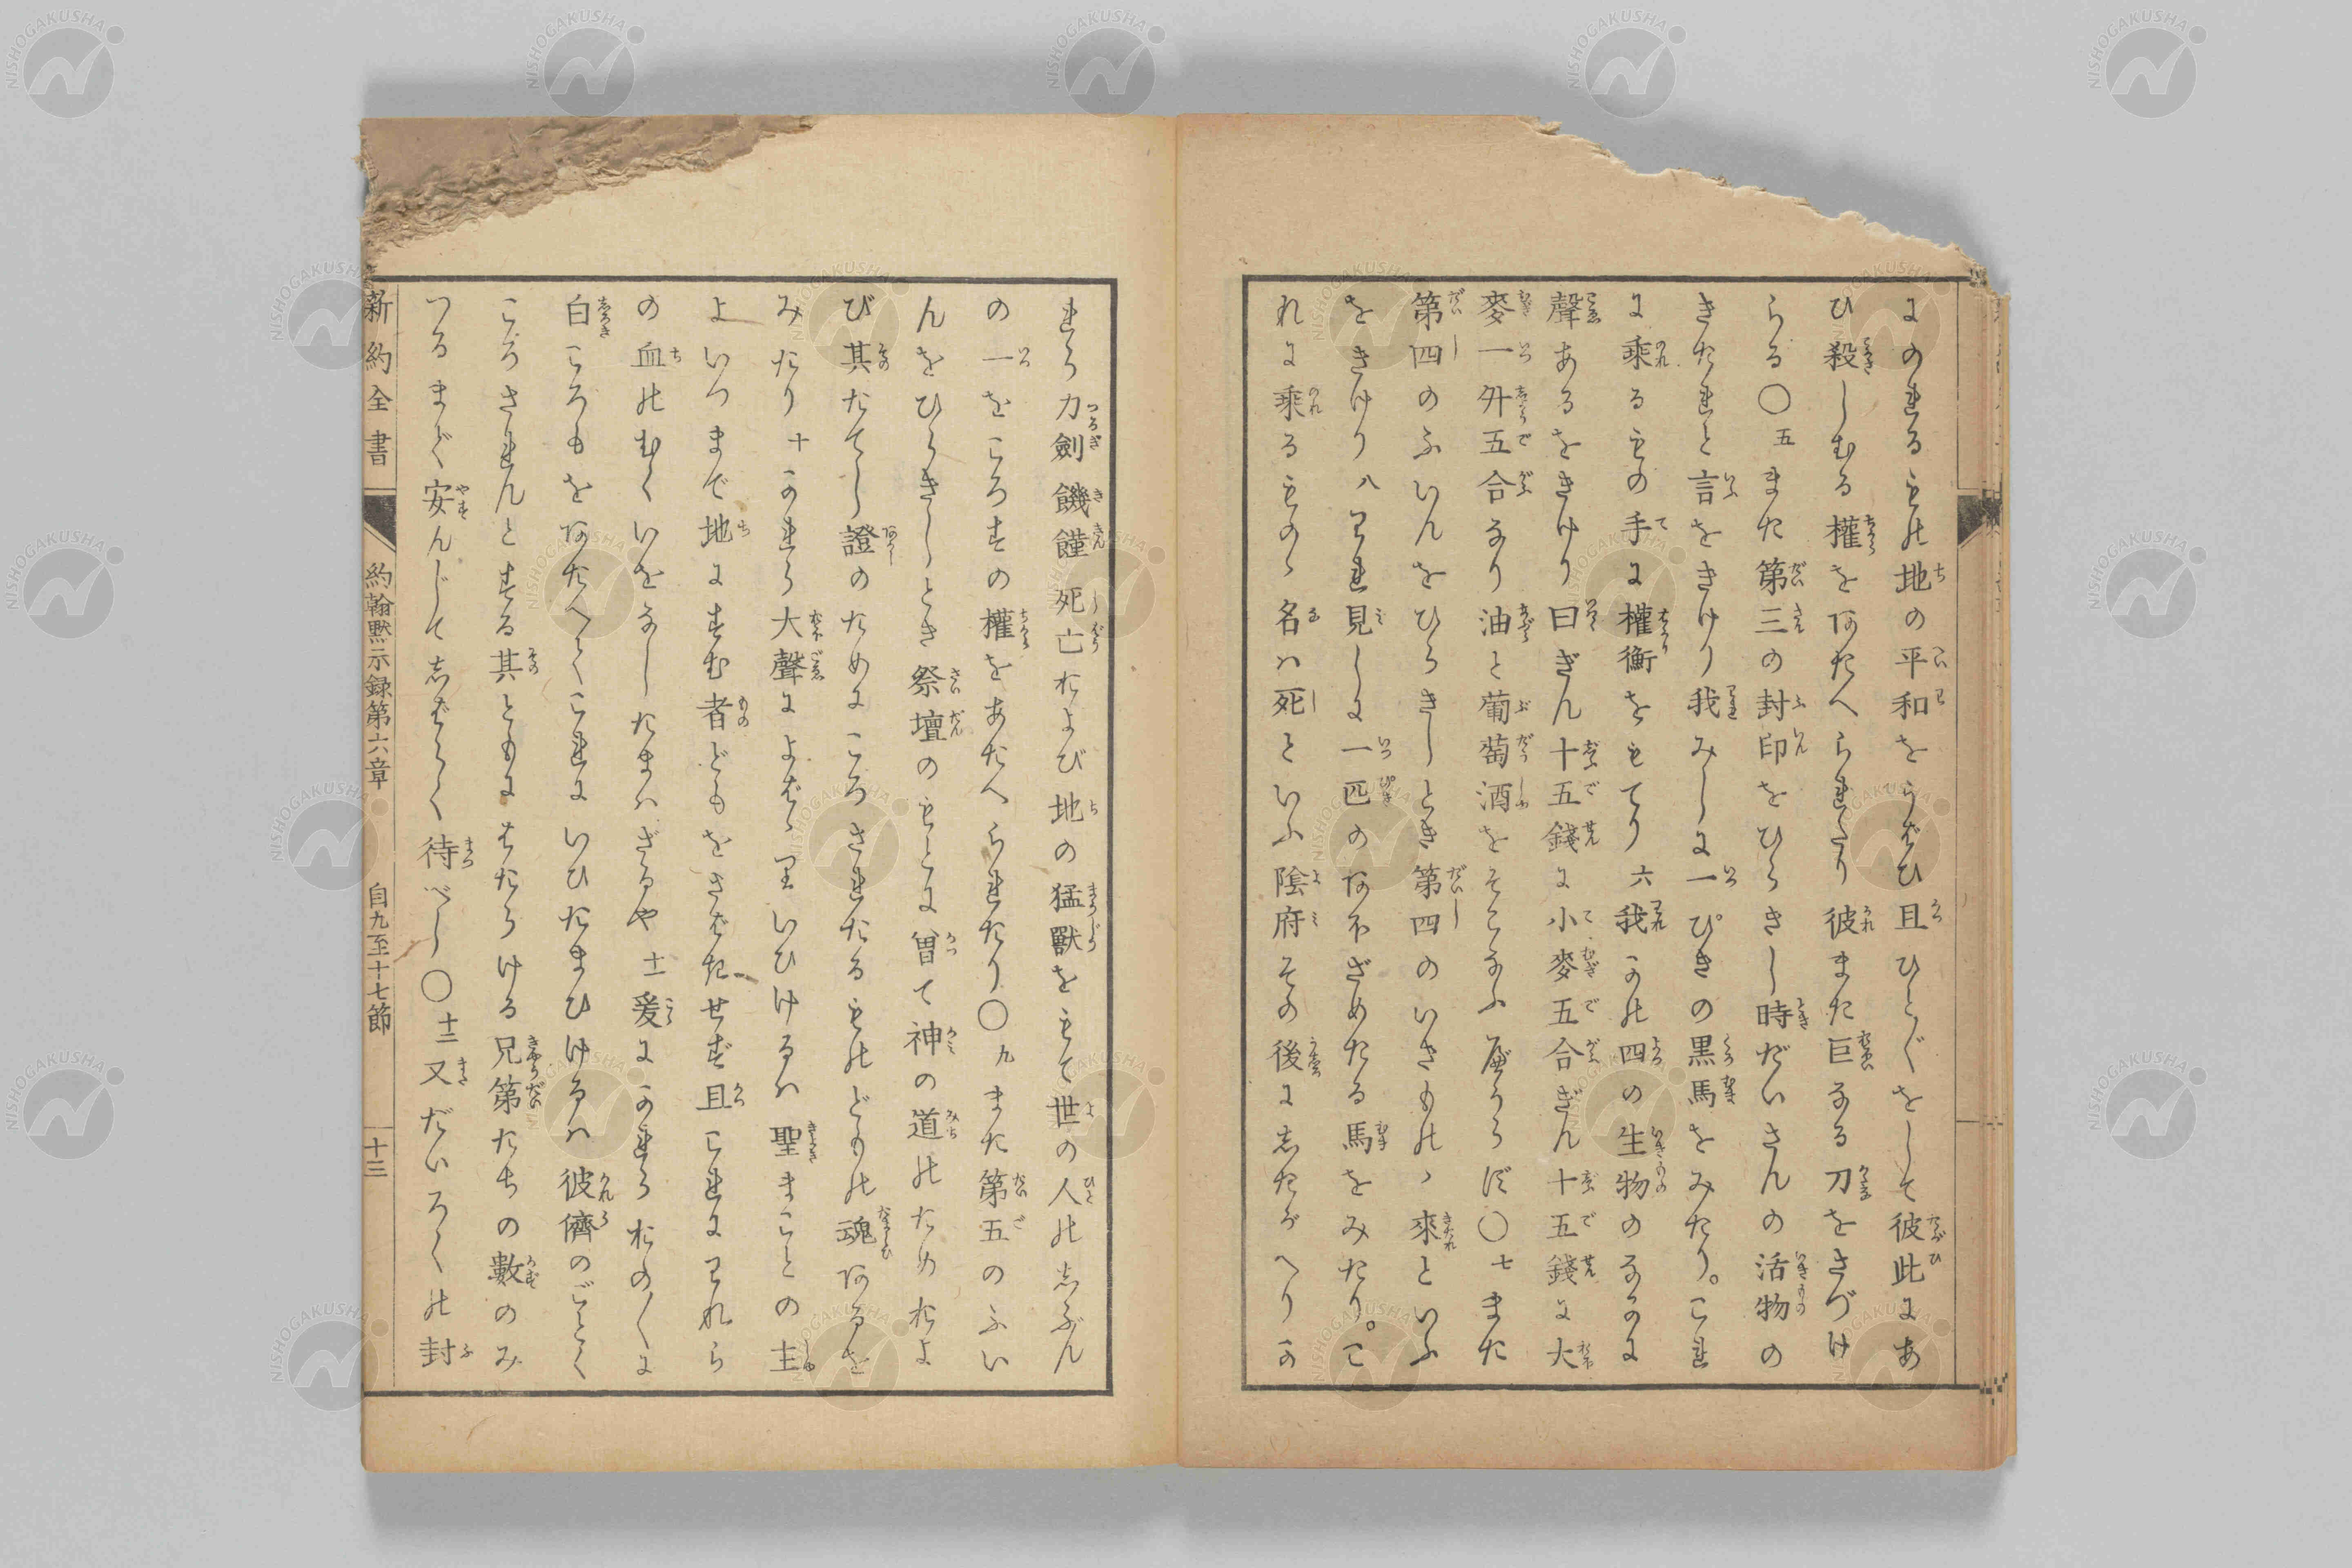 にのれるもの地の平和をうばひ且ひと〴〵をして彼此にあ
ひ殺しむる權をあたへられたり彼また巨なる刀をさづけ
らる〇五また第三の封印をひらきし時だいさんの活物の
きたれと言をきけり我みしに一ぴきの黒馬をみたり。これ
に乘るもの手に權衡をもてり六我この四の生物のなかに
聲あるをきけり曰ぎん十五錢に小麥五合ぎん十五錢に大
麥一升五合なり油と葡萄酒をそこなふべからず〇七また
第四のふいんをひらきしとき第四のいきもの、來といふ
をきけり八われ見しに一匹のあをざめたる馬をみたり。こ
れに乘るものゝ名は死といふ陰府その後にしたがへりか
れら力劍饑饉死亡および地の猛獸をもて世の人のしぶん
の一をころすの權をあたへられたり〇九また第五のふい
んをひらきしとき祭壇のもとに曾て神の道のためおよ
び其たてし證のためにころされたるものどもの魂あるを
みたり十かれら大聲によばゝりいひけるは聖まことの主
よいつまで地にすむ者どもをさばきせず且これにわれら
の血のむくいをなしたまはざるや十一爰にかれらおの〳〵に
白ころもをあたへてこれにいひたまひけるは彼儕のごとく
ころされんとする其ともにはたらける兄第たちの數のみ
つるまで安んじてしばらく待べし〇十二又だいろくの封
新約全書 約翰黙示録第六章 自九至十七節 十三